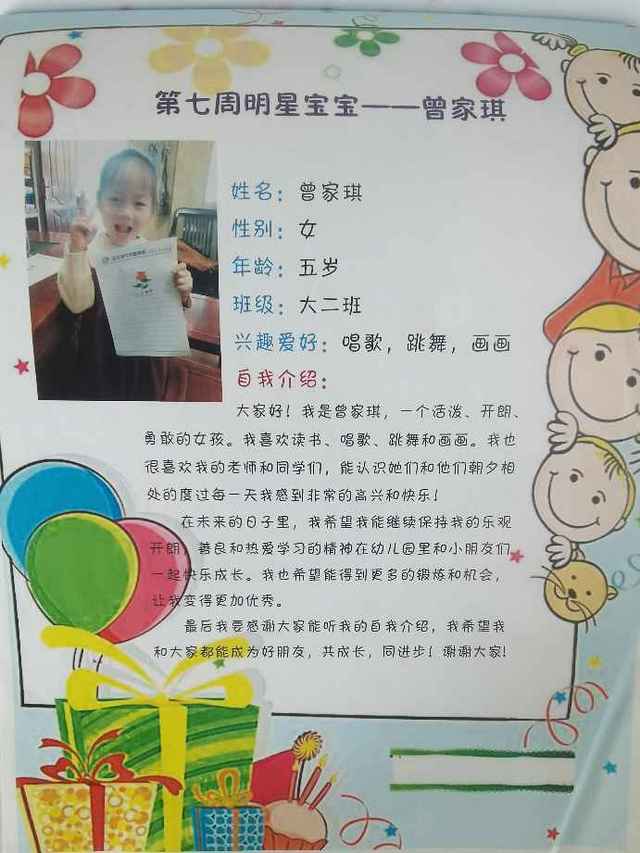 第七周明星宝宝——曾家琪
姓名：曾家琪
性别：女
年龄：五岁
班级：大二班
兴趣爱好：唱歌，跳舞，画画
自我介绍：
大家好！我是曾家琪，一个活泼、开朗、
勇敢的女孩。我喜欢读书、唱歌、跳舞和画画。我也
很喜欢我的老师和同学们，能认识她们和他们朝夕相
处的度过每一天我感到非常的高兴和快乐！
在未来的日子里，我希望我能继续保持我的乐观
开朗，善良和热爱学习的精神在幼儿园里和小朋友们
一起快乐成长。我也希望能得到更多的锻炼和机会，
让我变得更加优秀。
最后我要感谢大家能听我的自我介绍，我希望我
和大家都能成为好朋友，共成长，同进步！谢谢大家！